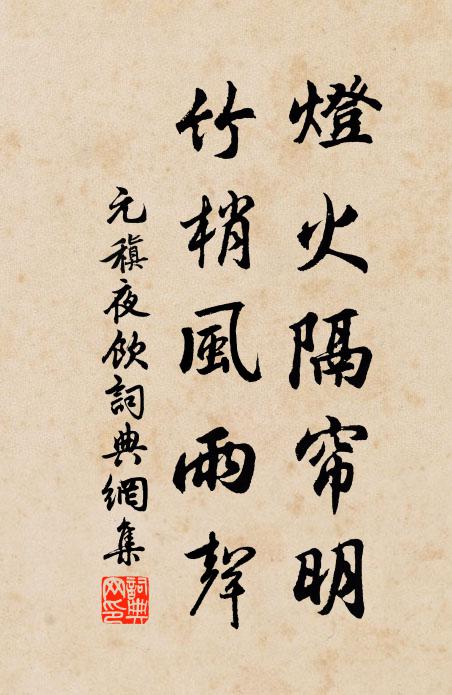 燈火隔帘明
竹梢風雨聲
元稹夜飲詞典網集
詞典